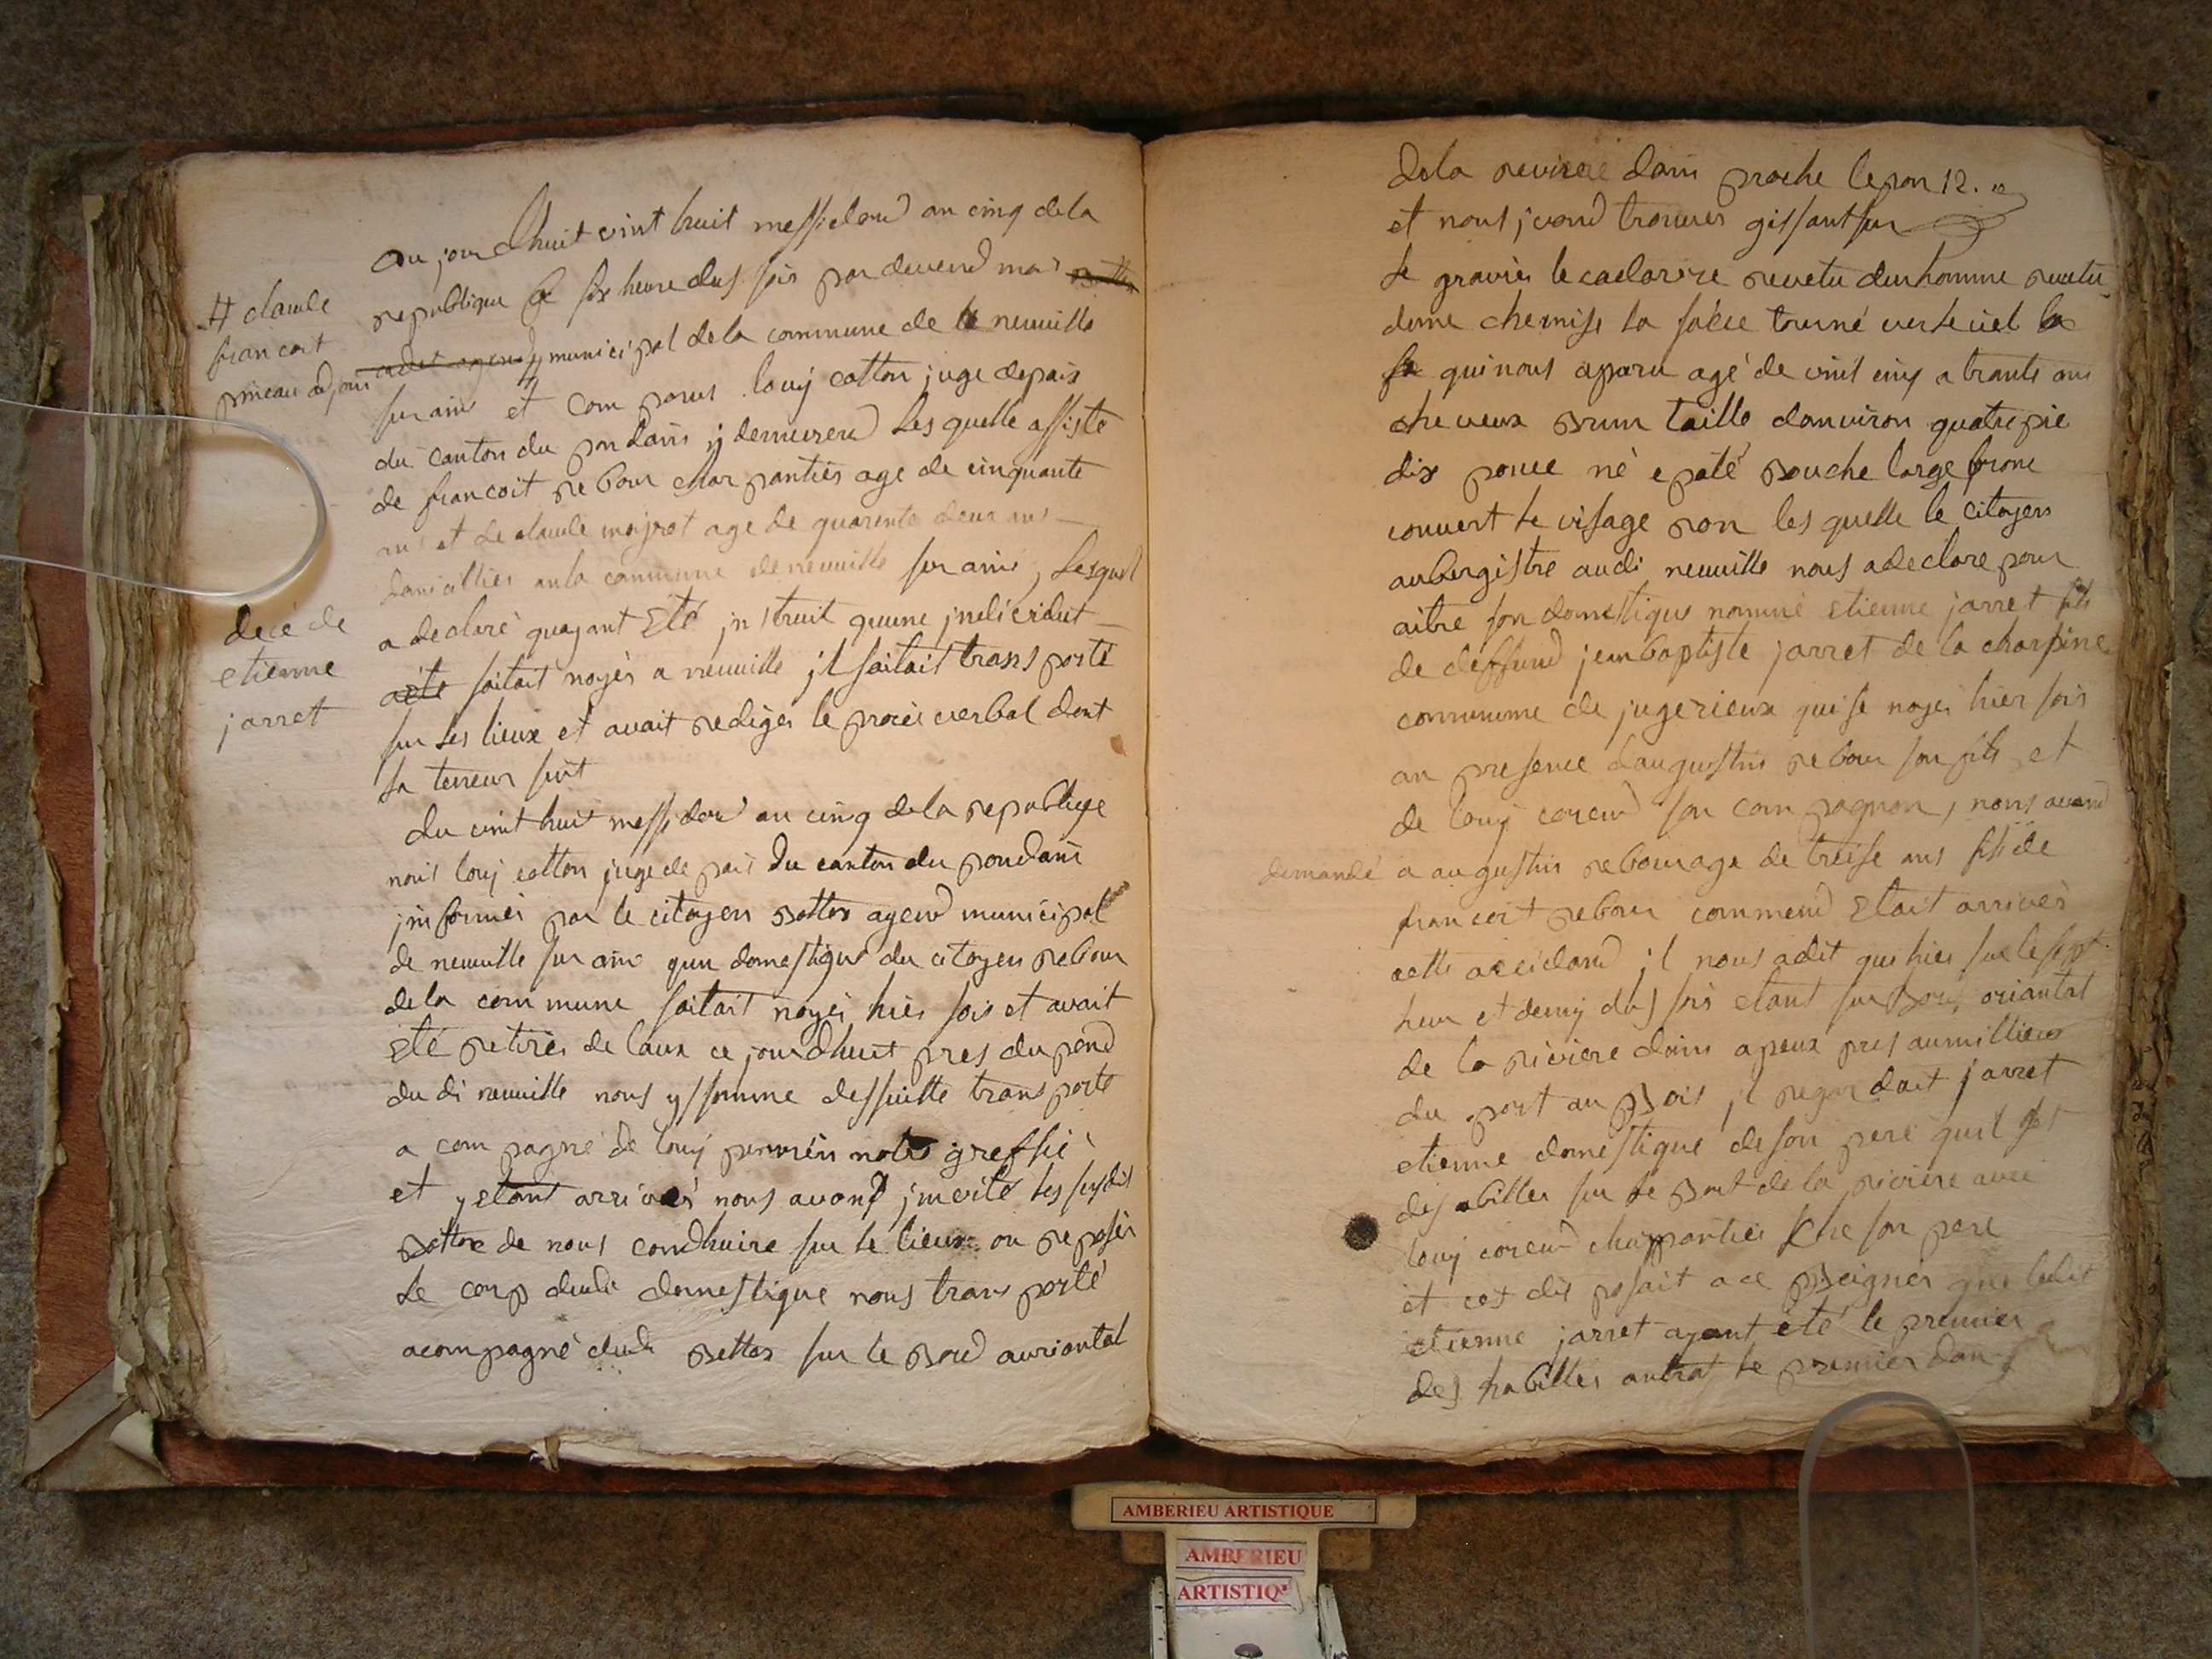 aujourdhuit vint huit messidord an cinq de la
republique a six heure dus soir par devend moi
# claude
francoit
pineau adjoin
municipal de la commune de neuville
sur ains et com parus louij cotton juge depais
du canton du pondains ij demeurend lesquelle assiste
de francoit rebour charpantiés age de cinquante
ans et de claude moijret age de quarente deux ans
domicilliés an la commune de neuville sur ains, lesquel
a declaré quajant Eté jnstruit quune jndicidut
aété saitait nojés a neuville jl saitait transporté
decé de
etienne
jarret
sur les lieux et avait rediges le procés verbal dont
la teneur suit
du vint huit messidord an cinq de la republige
nous louij cotton juge de pais du canton du pondains
jnformés par le citoyen bottex agend municipal
de neuville sur ains quun domestique du citoyen rebour
de la commune saitait nojés hiés soir et avait
Eté retirés de laux ce jourdhuit pres du pond
du di neuville nous ij somme dessuitte transporte
a compagné de louij notre greffié
et ij etant arrivés nous avond jnvité les susdit
bottex de nous condhuire sur le lieux ou reposés
le corp dudi domestique nous transporté
acompagné dudi bottex sur le bord auriantal
de la reviere dains proche le pon 12.
et nous javond trouves gissant sur
le graviés le cadavre revetu dunhomme revetu
dune chemise la face tourné vers le ciel la
qui nous aparu agé de vint cinq a trante ans
cheveux brun taille danviron quatre pie
dix pouce né epaté bouche large frone
couvert le visage ron les quelle le citoyen
aubergistre audi neuville nous adeclare pour
aitre son domestique nommé Etienne jarret fils
de deffund jean baptiste jarret de la charpine
commune de jugerieux qui se nojes hier soir
an presence daugustin rebour son fils et
de louij coreud son compagnon, nous avand
demandé a augustin rebour age de treise ans fils de
francoit rebour commend Etait arrivés
cette accidand jl nous adit que hiés sur le sept
heur et demij dus soir etant sur bord oriantal
de la riviere dains apeux pres aumillieux
du port au bois jl regardait jarret
etienne domestique de son pere quil
desabilles sur le bort de la riviere avec
louij coreud charpantiés che son pere
et ces dis posait a ce beignés que ledit
etienne jarret ayant été le premier
des habilles antrat le premier dan
AMBERIEU ARTISTIQUE
AMBERIEU
ARTISTIQ